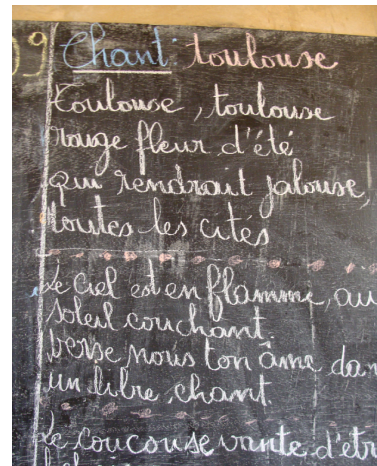 09 Chant toulouse
toulouse, toulouse
rouge fleur d'été
qui rendrait jalouse,
toutes les cités
Le ciel est en flamme, au
soleil couchant.
verse nous ton âme dan
un libre, chant.
Le coucou se vante d'etr